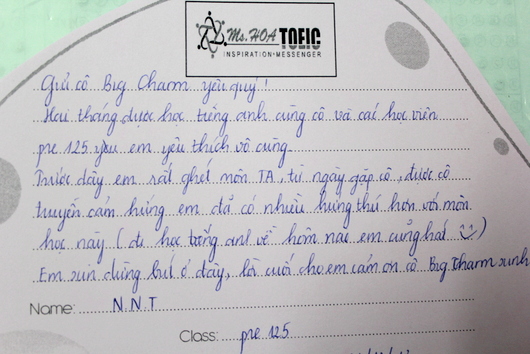 Ms. HOA TOEIC
INSPIRATION • MESSENGER
Gửi cô Big Charm yêu quý!
Hai tháng được học tiếng anh cùng cô và các học viên
pre 125 yêu em yêu thích vô cùng
Trước đây em rất ghét môn TA, từ ngày gặp cô, được cô
truyền cảm hứng em đã có nhiều hứng thú hơn với môn
học này (đi học tiếng anh về hôm nào em cũng hát)
Em xin dừng bút ở đây, lời cuối cho em cảm ơn cô Big Charm xinh
Name: N N T
Class: pre 125